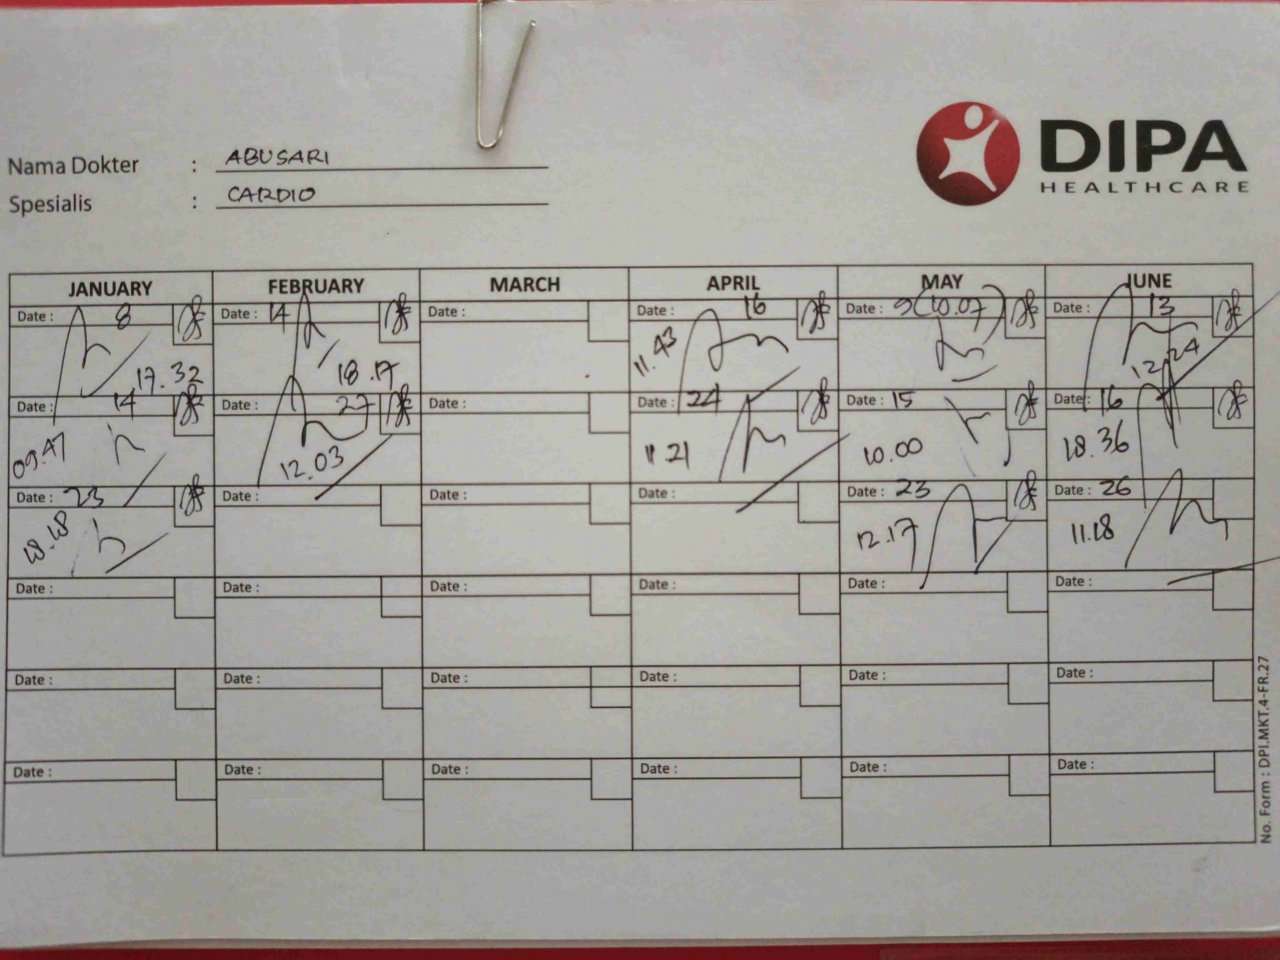 DIPA
HEALTHCARE
Nama Dokter : ABUSARI
Spesialis : CARDIO
JANUARY FEBRUARY MARCH APRIL MAY JUNE
Date : 8 Date : 14 Date : Date : 16 Date : 9 (10.07) Date : 13
17.32 18.17 11.43 12.24
Date : 14 Date : 27 Date : Date : 24 Date : 15 Date : 16
09.47 12.03 11.21 10.00 18.36
Date : 23 Date : Date : Date : Date : 23 Date : 26
18.18 12.17 11.18
Date : Date : Date : Date : Date : Date :
Date : Date : Date : Date : Date : Date :
Date : Date : Date : Date : Date : Date :
No. Form : DPI.MKT.4-FR.27